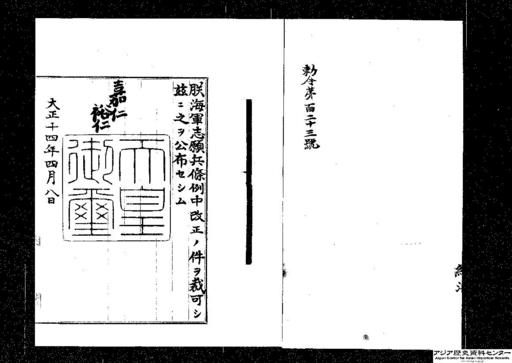 勅令第百二十三號
朕海軍志願兵條例中改正ノ件ヲ裁可シ
茲ニ之ヲ公布セシム
嘉仁
裕仁
天皇
御璽
大正十四年四月八日
アジア歴史資料センター
Japan Center for Asian Historical Records